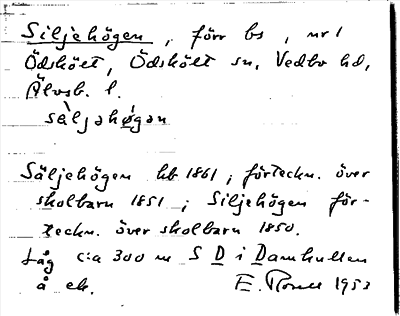 Siljehögen, förr bs, nr 1
Ödskölt, Ödskölt sn, Vedbo hd,
Älvsb. l.
sèljəhø̀gən
Säljehögen hb 1861; förteckn. över
skolbarn 1851; Siljehögen för-
teckn. över skolbarn 1850.
Låg c:a 300 m S D i Damhulten
å ek. E. 1953